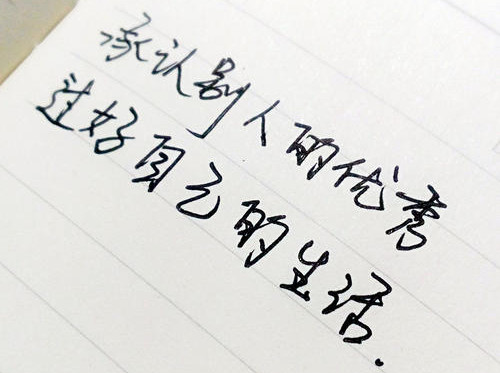 承认别人的优秀
过好自己的生活.